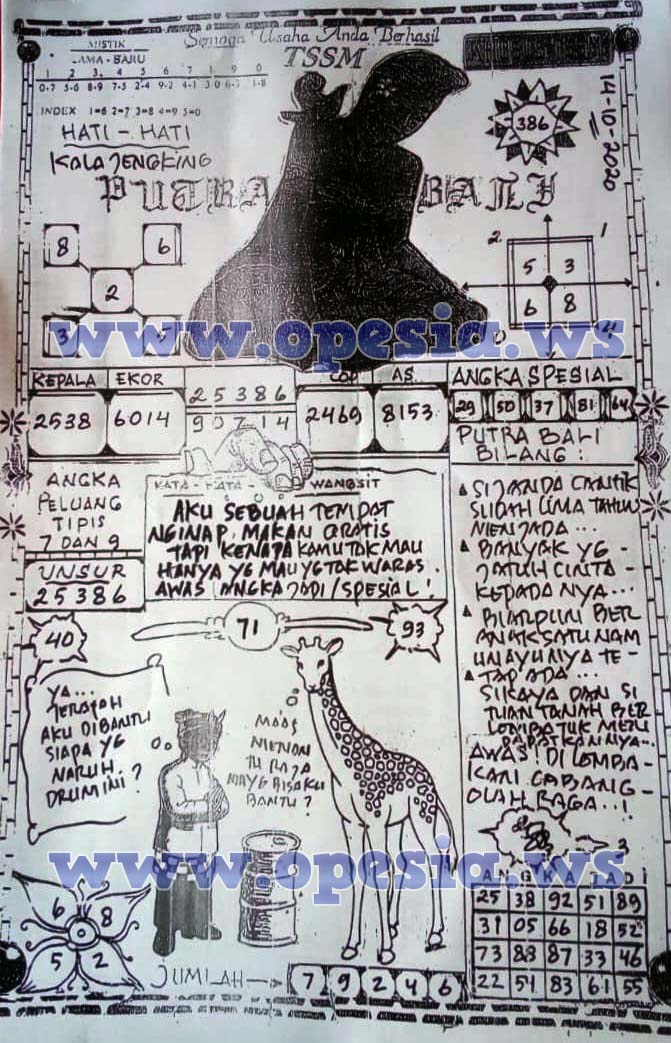 Semoga Usaha Anda Berhasil
TSSM
MISTIK
LAMA - BARU
1 2 3 4 5 6 7 8 9 0
INDEX 1=6 2=7 3=8 4=9 5=0
HATI - HATI
KALAJENGKING
PUTRA BALI
386
14-10-2020
8 6
2
3
2 1
5 3
6 8
www.opesia.ws
KEPALA EKOR
2538 6014
25386
90714
COP AS
2469 8153
ANGKA SPESIAL
29 50 37 81 64
PUTRA BALI
BILANG :
ANGKA
PELUANG
TIPIS
7 DAN 9
UNSUR
25386
KATA - KATA WANGSIT
AKU SEBUAH TEMPAT
NGINAP, MAKAN GRATIS
TAPI KENAPA KAMU TAK MAU
HANYA YG MAU YG TAK WARAS.
AWAS ANGKA JADI / SPESIAL !
SI JANDA CANTIK
SUDAH LIMA TAHUN
MENJADA...
BANYAK YG -
JATUH CINTA -
KEPADANYA...
BIARPUN BER
ANAK SATU NAM
UN AYUNYA TE -
TAP ADA...
SI KAYA DAN SI
TUAN TANAH BER
LOMBA TUK MEN
DAPATKANNYA...
AWAS ! DI LOMBA -
KAN CABANG -
OLAH RAGA...!
40
71
93
YA...
TERSERAH
AKU DIBANTU
SIAPA YG
NARUH
DRUM INI ?
MAAS
MENAN
TU RAJA
MAYG BISA KU
BANTU ?
3
www.opesia.ws
6 8
5 2
JUMLAH
7 9 2 4 6
ANGKA JADI
25 38 92 51 89
31 05 66 18 52
73 88 87 33 46
22 54 83 61 55